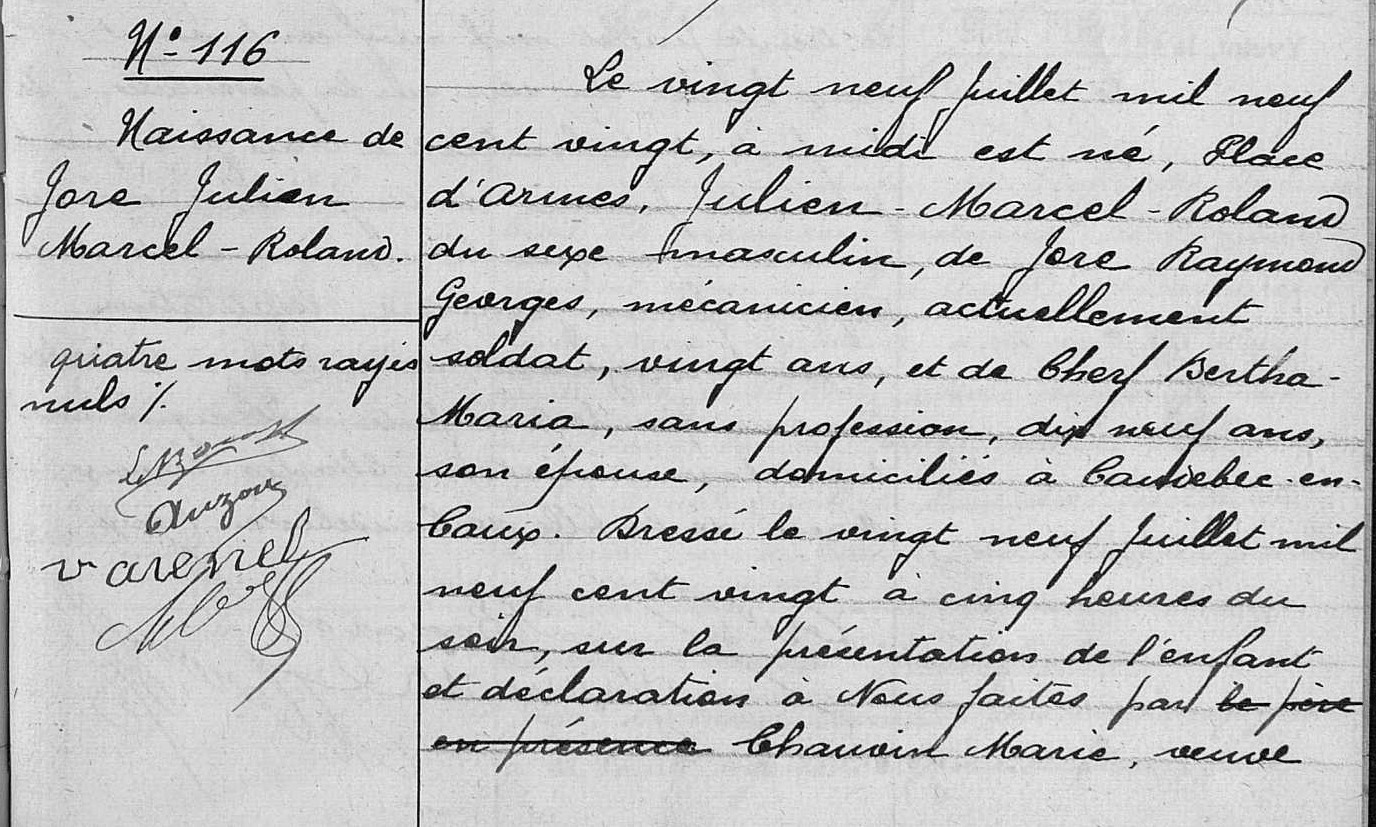 N° 116
Naissance de
Jore Julien
Marcel - Roland.
quatre mots rayés
nuls ./.
Auzou
Varenel
Le vingt neuf Juillet mil neuf
cent vingt, à midi est né, Place
d'armes, Julien - Marcel - Roland
du sexe masculin, de Jore Raymond
Georges, mécanicien, actuellement
soldat, vingt ans, et de Cherf Bertha-
Maria, sans profession, dix neuf ans,
son épouse, domiciliés à Caudebec-en-
Caux. Dressé le vingt neuf Juillet mil
neuf cent vingt à cinq heures du
soir, sur la présentation de l'enfant
et déclaration à Nous faites par le père
en présence Chauvin Marie, veuve